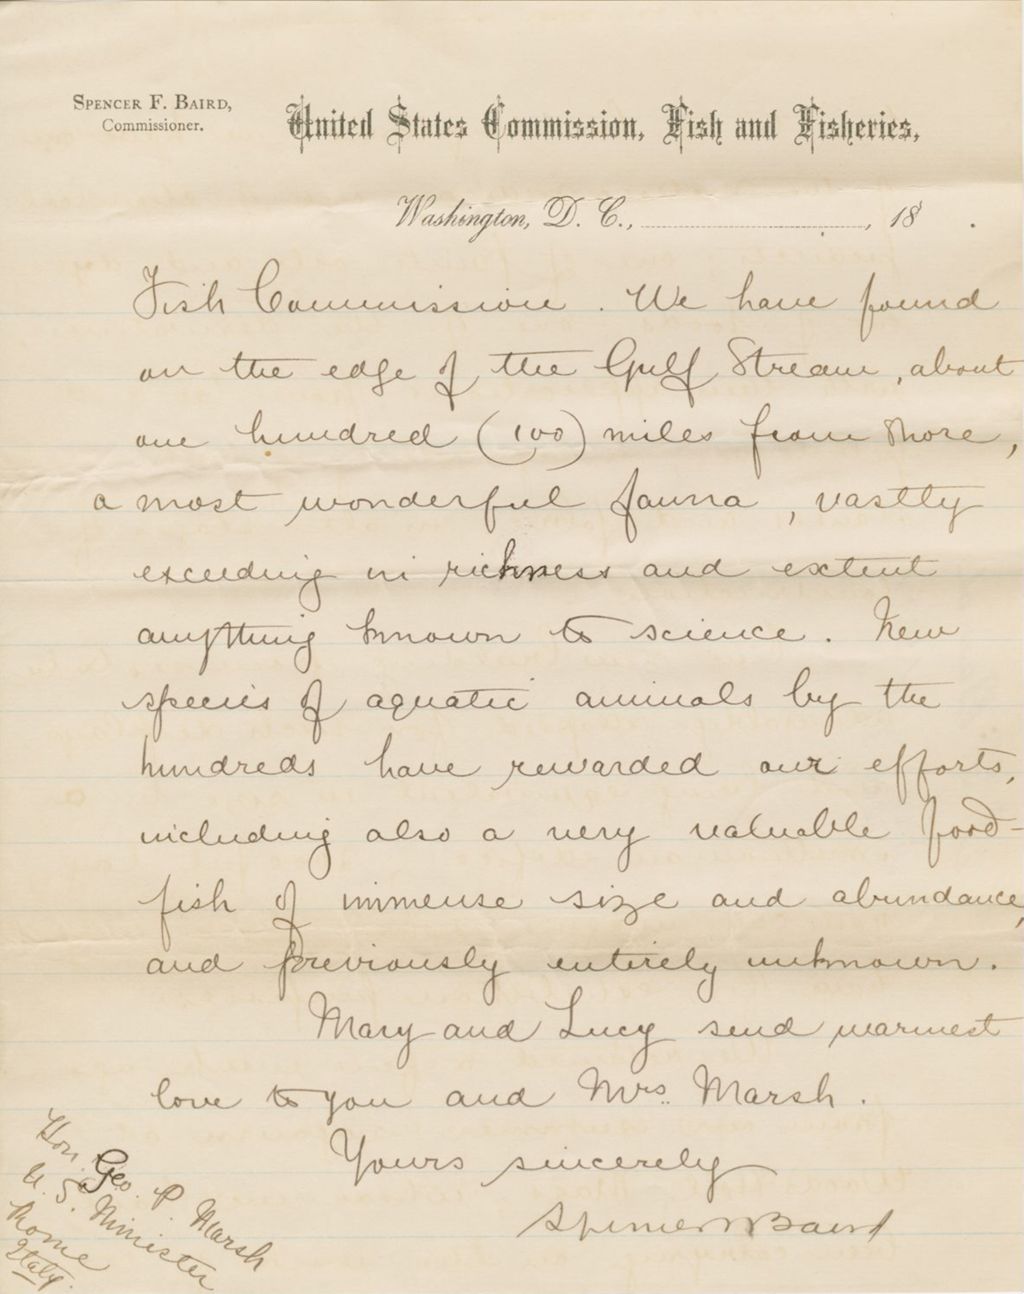 SPENCER F. BAIRD,
Commissioner.
United States Commission, Fish and Fisheries,
Washington, D. C., , 18 .
Fish Commission. We have found
on the edge of the Gulf Stream, about
one hundred (100) miles from shore,
a most wonderful fauna, vastly
exceeding in richness and extent
anything known to science. New
species of aquatic animals by the
hundreds have rewarded our efforts,
including also a very valuable food-
fish of immense size and abundance,
and previously entirely unknown.
Mary and Lucy send warmest
love to you and Mrs. Marsh.
Yours sincerely
Spencer F Baird
Hon. Geo. P. Marsh
U. S. Minister
Rome
Italy.